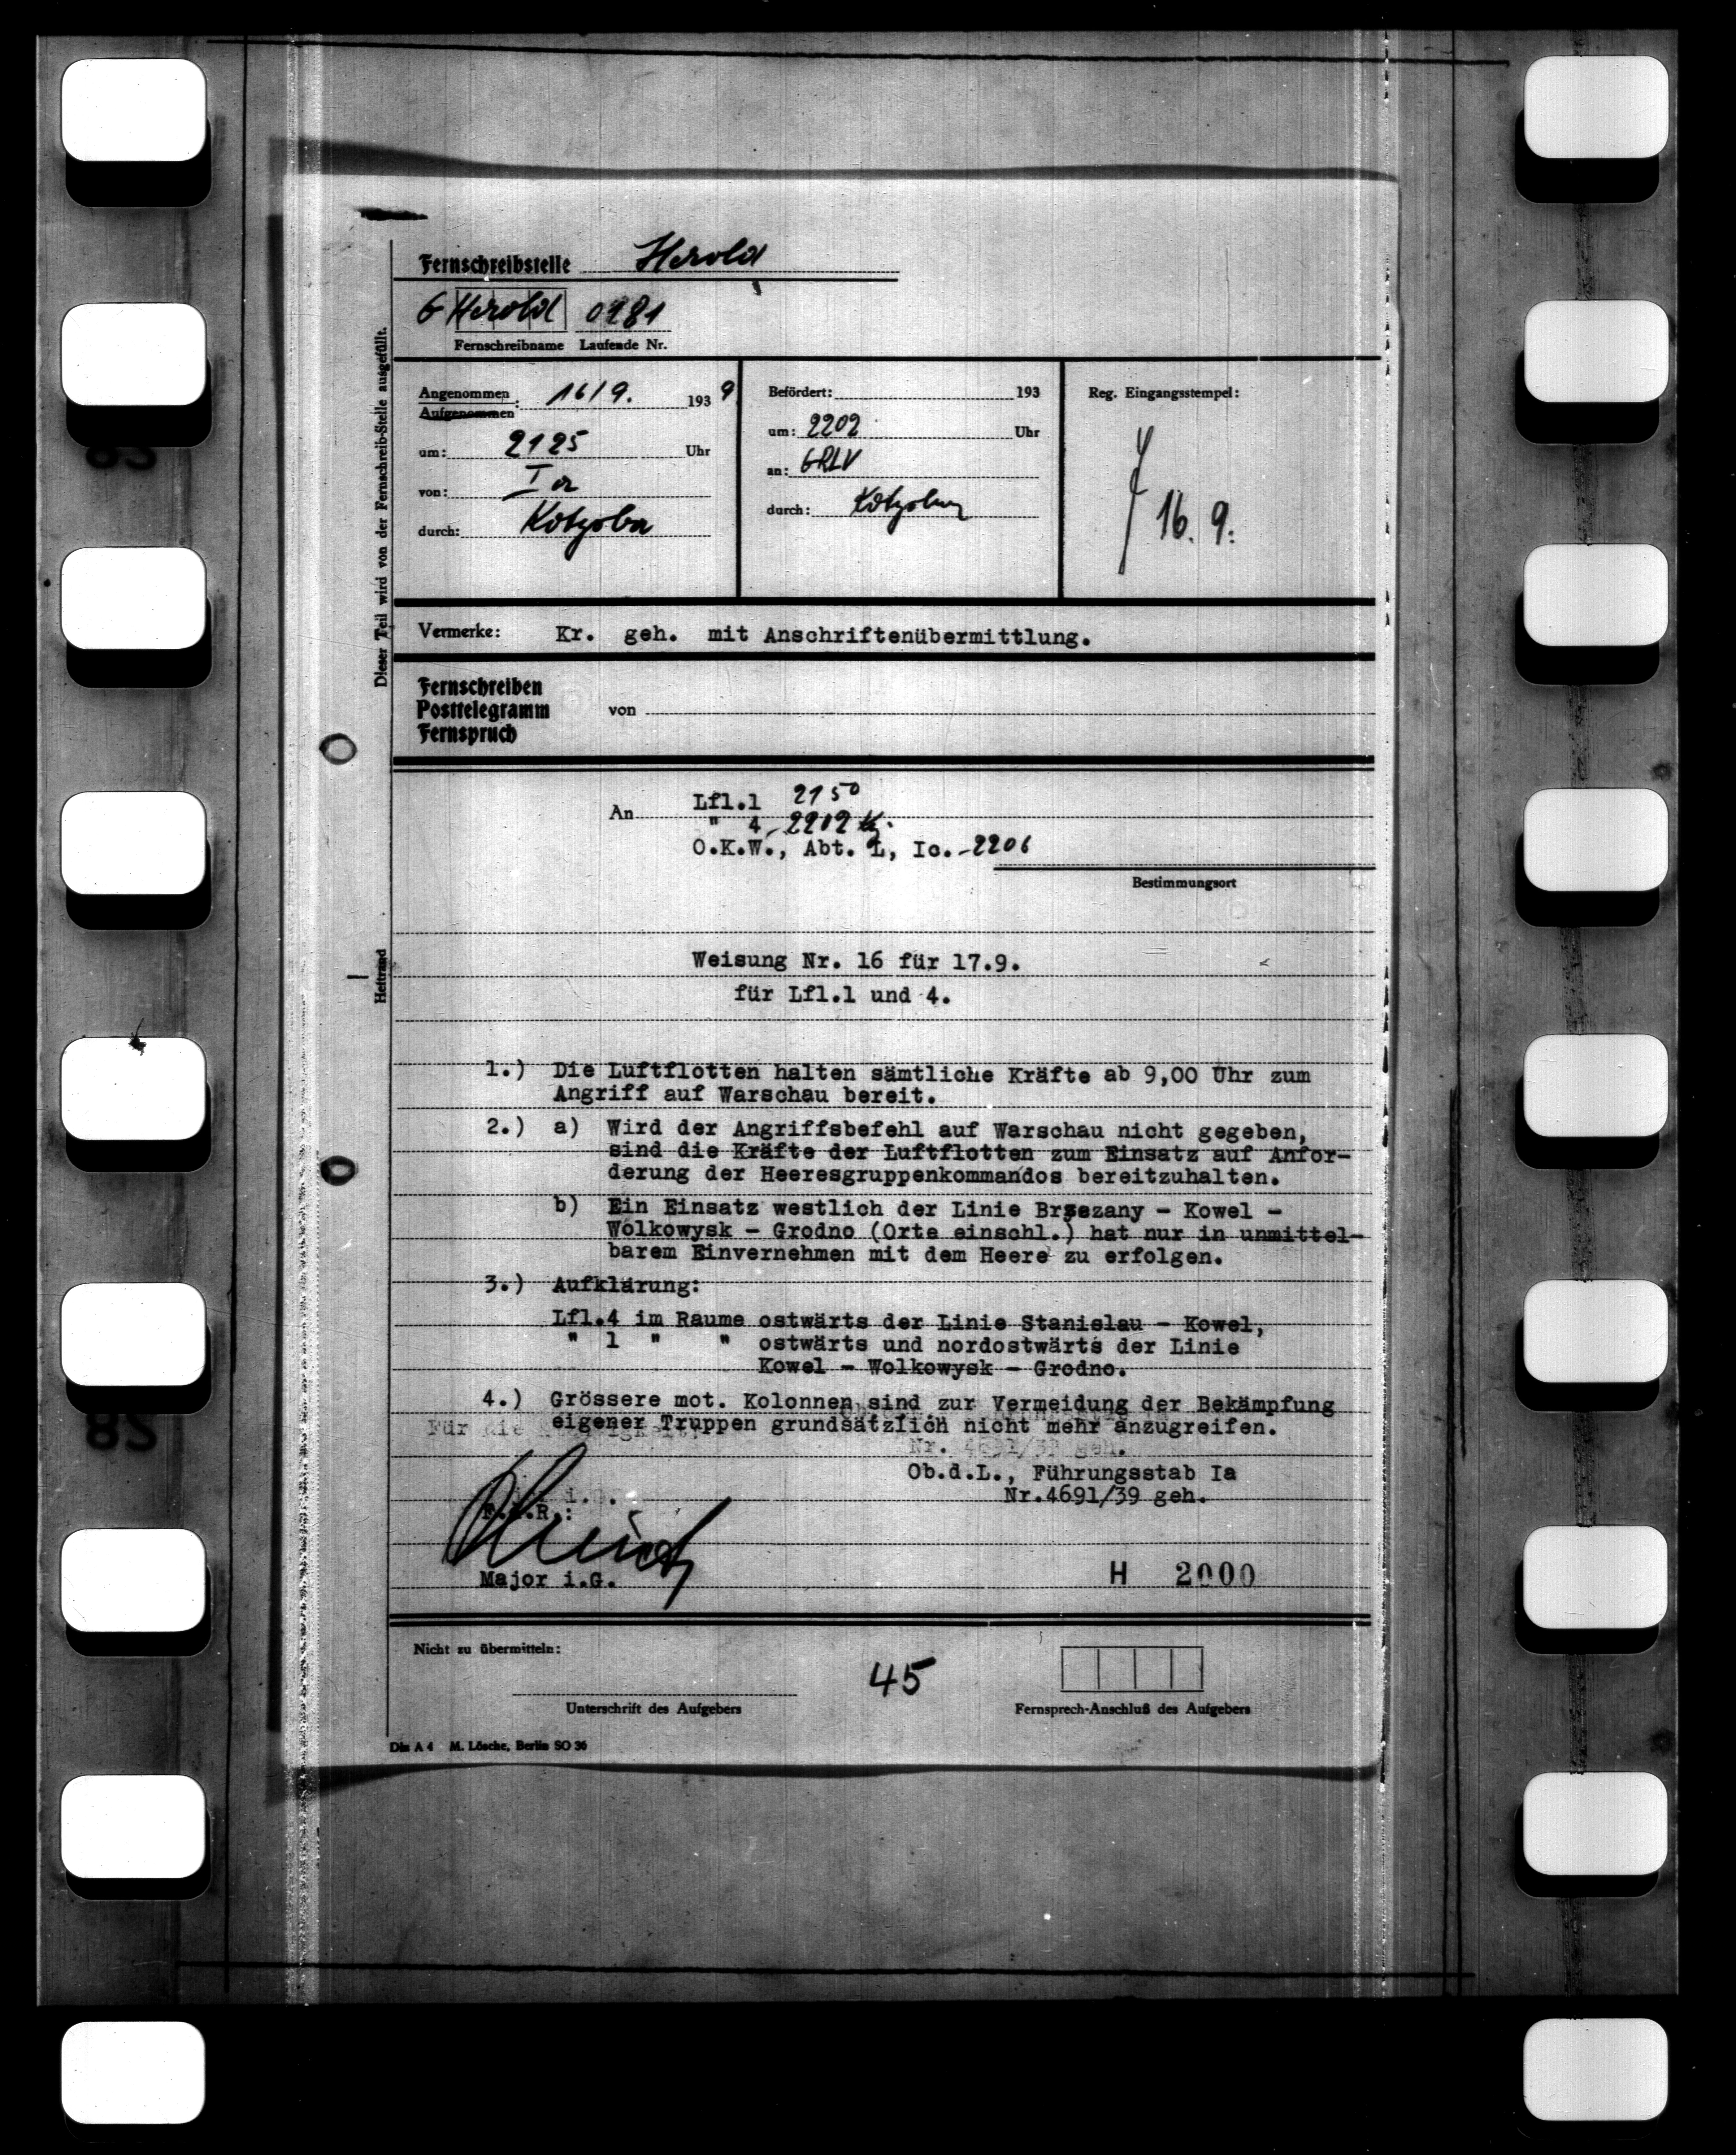 Fernschreibstelle Herold
G Herold 0281
Fernschreibname Laufende Nr.
Angenommen
Aufgenommen: 16/9. 1939
um: 2125 Uhr
von: Ia
durch: Kotzoba
Befördert: 193
um: 2202 Uhr
an: GRLV
durch:
Reg. Eingangsstempel:
16. 9.
Dieser Teil wird von der Fernschreib-Stelle ausgefüllt.
Vermerke: Kr. geh. mit Anschriftenübermittlung.
Fernschreiben
Posttelegramm
Fernspruch
von
An Lfl.1 2150
" 4 2202
O.K.W., Abt. L, Ic. 2206
Bestimmungsort
Heftrand
Weisung Nr. 16 für 17.9.
für Lfl.1 und 4.
1.) Die Luftflotten halten sämtliche Kräfte ab 9,00 Uhr zum
Angriff auf Warschau bereit.
2.) a) Wird der Angriffsbefehl auf Warschau nicht gegeben,
sind die Kräfte der Luftflotten zum Einsatz auf Anfor-
derung der Heeresgruppenkommandos bereitzuhalten.
b) Ein Einsatz westlich der Linie Brzezany - Kowel -
Wolkowysk - Grodno (Orte einschl.) hat nur in unmittel-
barem Einvernehmen mit dem Heere zu erfolgen.
3.) Aufklärung:
Lfl.4 im Raume ostwärts der Linie Stanislau - Kowel,
" 1 " " ostwärts und nordostwärts der Linie
Kowel - Wolkowysk - Grodno.
4.) Grössere mot. Kolonnen sind zur Vermeidung der Bekämpfung
eigener Truppen grundsätzlich nicht mehr anzugreifen.
Für die
Nr. 4691/39 geh.
Ob.d.L., Führungsstab Ia
Nr.4691/39 geh.
F.d.R.:
Major i.G.
H 2000
Nicht zu übermitteln:
45
Unterschrift des Aufgebers
Fernsprech-Anschluß des Aufgebers
Din A 4 M. Lösche, Berlin SO 36
82